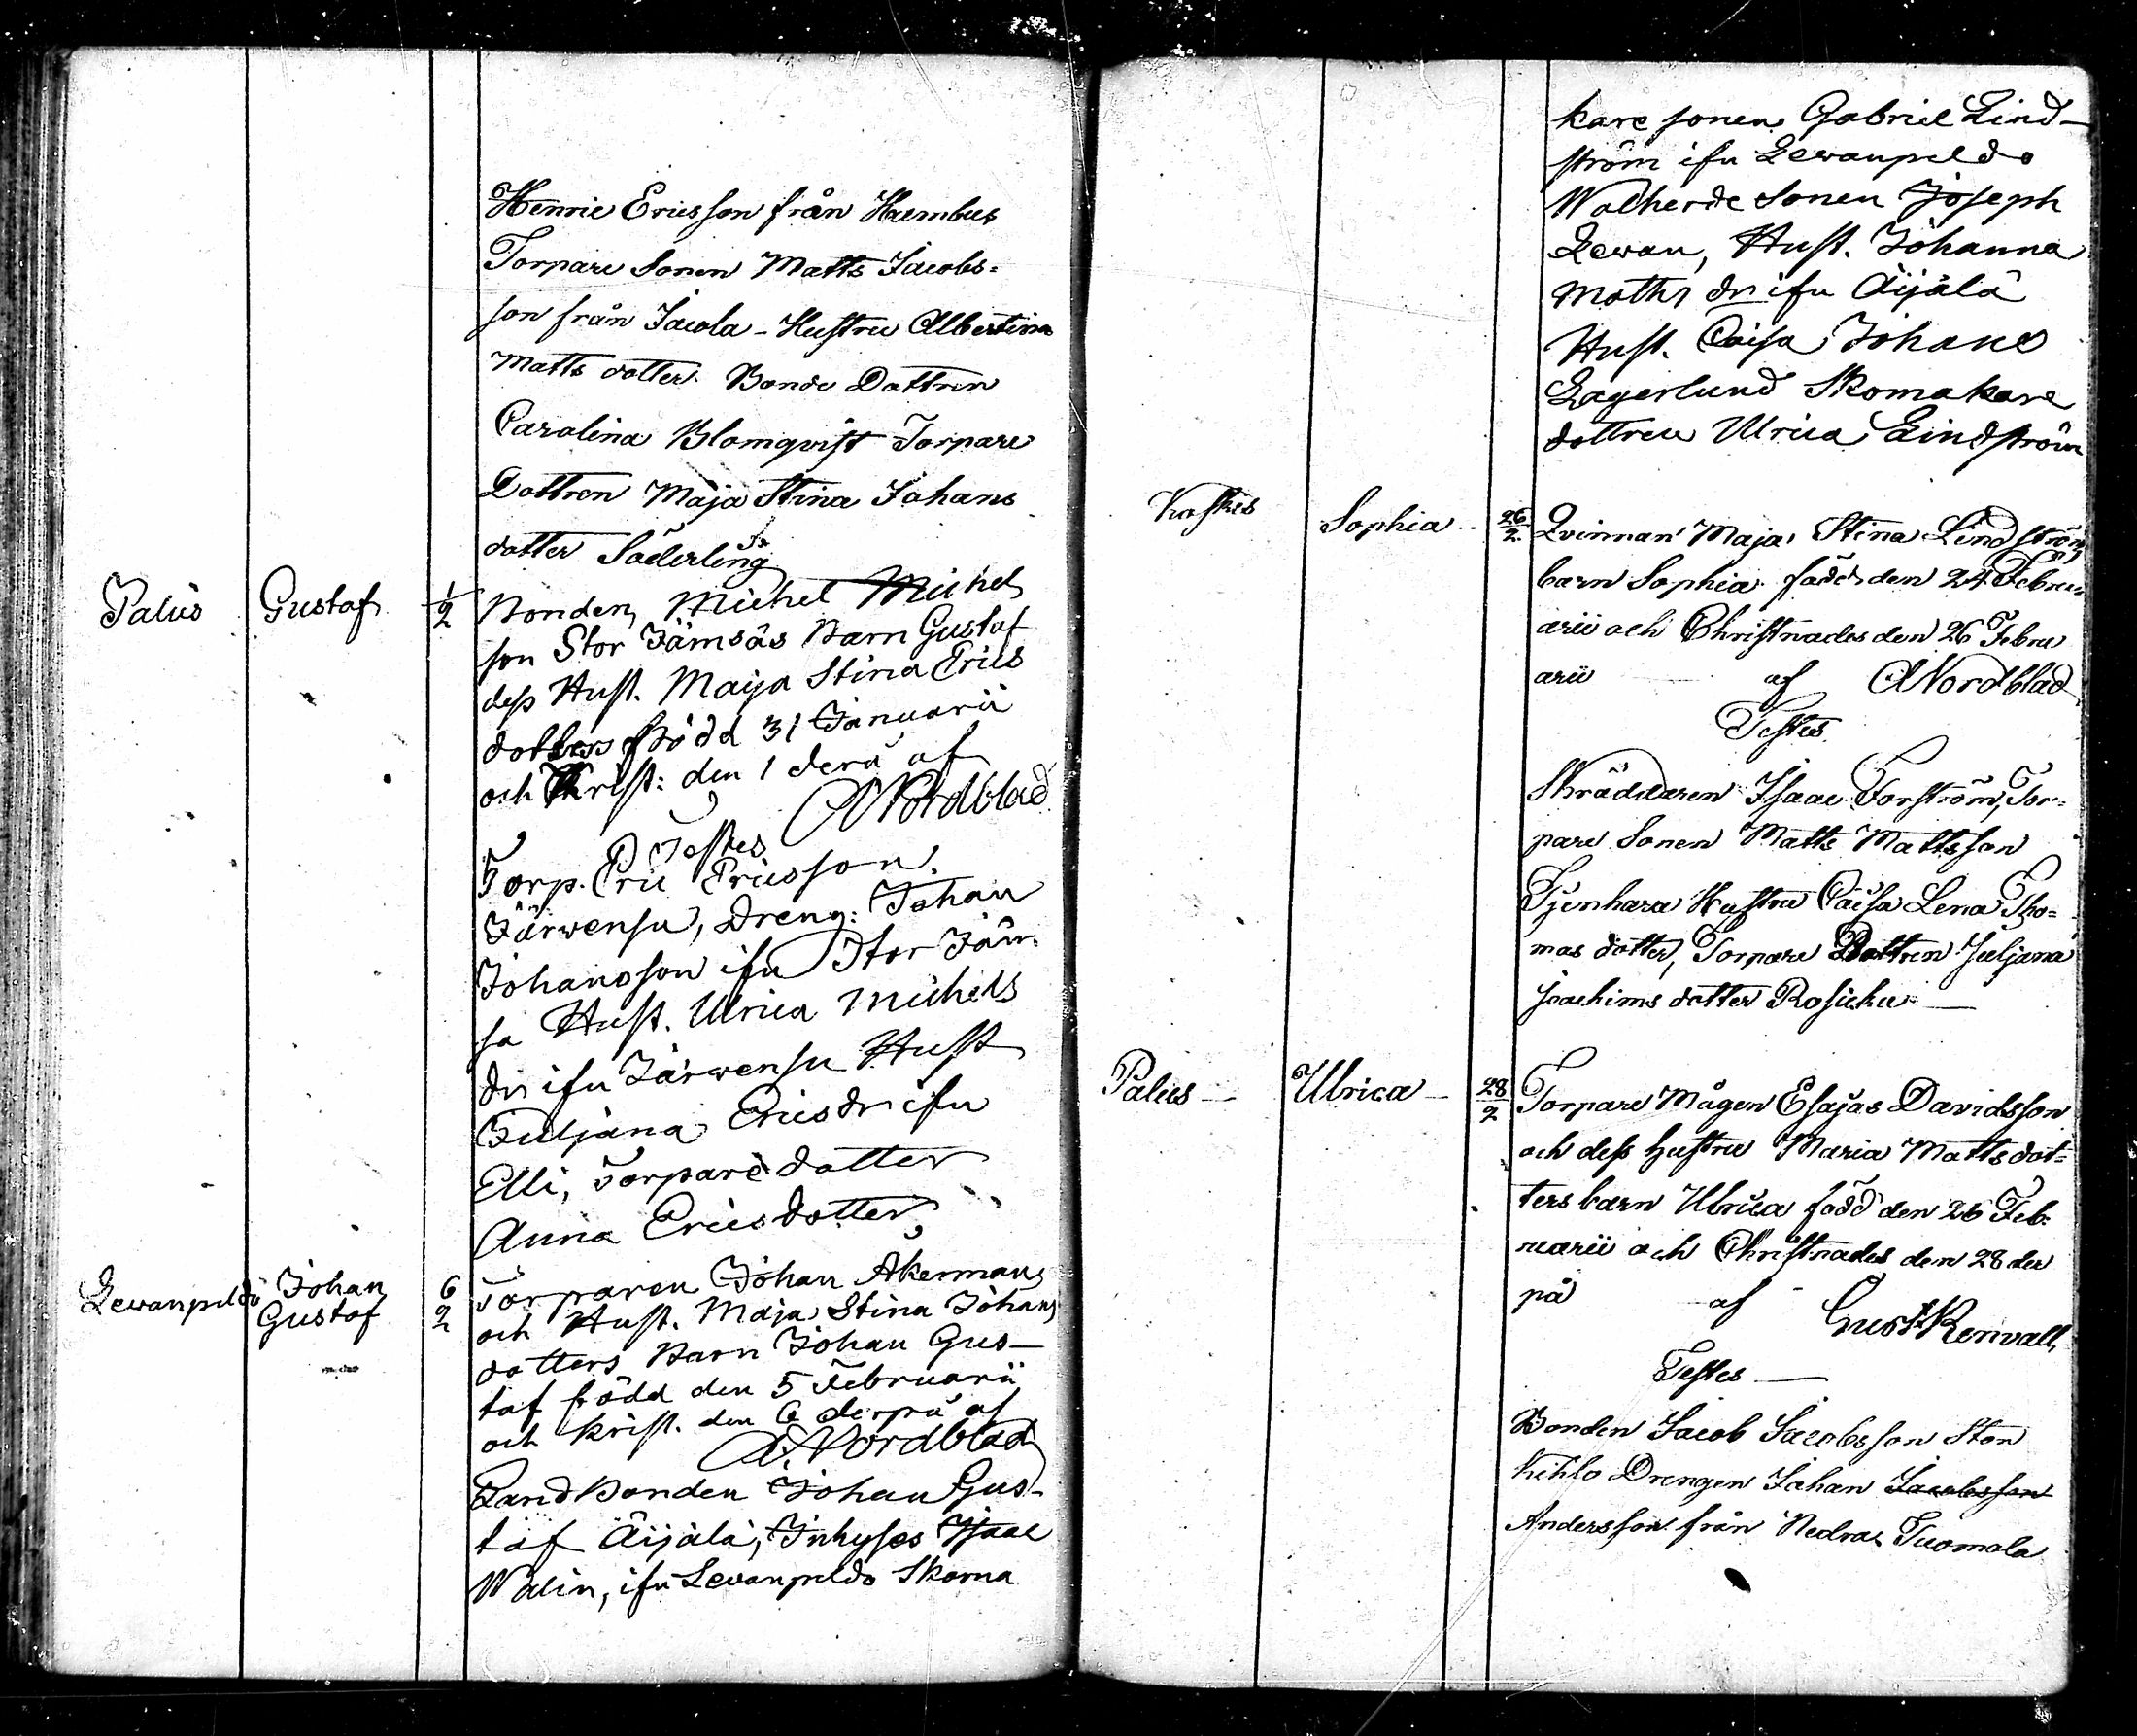 Henric Ericsson från Haembus
Torpare Sonen Matts Jacobs=
son från Jacola - Hustru Albertina
Matts dotter. Bonde Dottren
Carolina Blomqvist Torpare
Dottren Maja Stina Johans
dotter Söderling
Palus Gustaf 1/2 Bonden Michel Michels
son Stor Jämsäs Barn Gustaf
dess Hust. Maija Stina Erics
dotters född 31 Januarii
och Christ: den 1 derå af
A Nordblad
Testes
Torp. Eric Ericsson
Järwensu, Dreng: Johan
Johansson ifn Stor Jäm
sä Hust. Ulrica Michels
dr ifn Järwensu Hust
Juljana Ericsdr ifn
Elli, Torpare dotter
Anna Ericsdotter
Lewanpeldo Johan Gustaf 6/2 Torparen Johan Akermans
och Hust. Maja Stina Johans
dotters Barn Johan Gus-
taf född den 5 Februarii
och Krist. den 6 derpå af
A. Nordblad
Landbonden Johan Gus-
taf Äijälä, Inhyses Isaac
Walin, ifn Lewanpeldo Skoma
kare sonen Gabriel Lind-
ström ifn Lewanpeldo
Walherde Sonen Joseph
Lewan, Hust. Johanna
Matts dr ifn Äijälä
Hust. Caisa Johans
Lagerlund Skomakare
dottren Ulrica Lindström
Koskis Sophia 26/2 Qvinnan Maja Stina Lindströms
barn Sophia född den 24 Febru=
arii och Christnades den 26 Febru
arii af A Nordblad
Testes
Skräddaren Isaac Forström, Tor=
pare Sonen Matts Mattsson
Tjenhara Hustru Caisa Lena Tho=
mas dotter, Torpare Dottren Juljana
Joachims dotter Rosicku -
Palus - Ulrica - 28/2 Torpare Mågen Esajas Davidsson
och dess hustru Maria Matts dot=
ters barn Ulrica född den 26 Feb=
ruarii och Christnades den 28 der
på af Gust Renvall,
Testes -
Bonden Jacob Jacobsson Stor
Kihlo Drengen Johan Jacobsson
Andersson från Nedra Tuomola